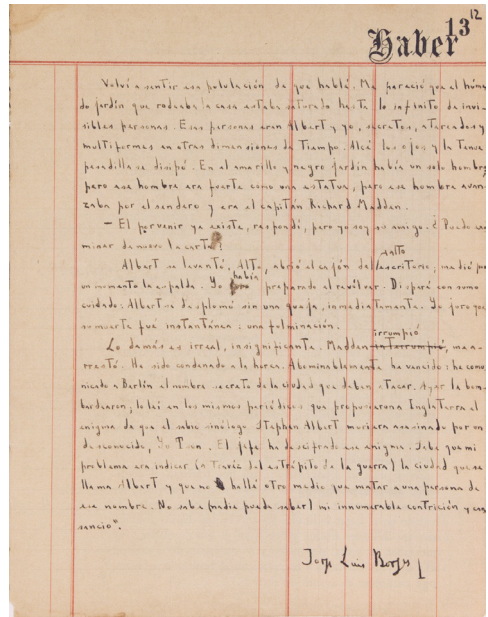 12
Haber 13
Volví a sentir esa pululación de que hablé. Me pareció que el húme-
do jardín que rodeaba la casa estaba saturado hasta lo infinito de invi-
sibles personas. Esas personas eran Albert y yo, secretos, atareados y
multiformes en otras dimensiones de tiempo. Alcé los ojos y la tenue
pesadilla se disipó. En el amarillo y negro jardín había un solo hombre;
pero ese hombre era fuerte como una estatua, pero ese hombre avan-
zaba por el sendero y era el capitán Richard Madden.
– El porvenir ya existe, respondí, pero yo soy su amigo. ¿Puedo exa-
minar de nuevo la carta?
alto
Albert se levantó. Alto, abrió el cajón del escritorio; me dió por
había
un momento la espalda. Yo preparado el revólver. Disparé con sumo
cuidado: Albert se desplomó sin una queja, inmediatamente. Yo juro que
su muerte fué instantánea: una fulminación.
irrumpió
Lo demás es irreal, insignificante. Madden interrumpió, me a-
rrestó. He sido condenado a la horca. Abominablemente he vencido: he comu-
nicado a Berlín el nombre secreto de la ciudad que deben atacar. Ayer la bom-
bardearon; lo leí en los mismos periódicos que propusieron a Inglaterra el
enigma de que el sabio sinólogo Stephen Albert muriera asesinado por un
desconocido, Yu Tsun. El jefe ha descifrado ese enigma. Sabe que mi
problema era indicar (a través del estrépito de la guerra) la ciudad que se
llama Albert y que no hallé otro medio que matar a una persona de
ese nombre. No sabe (nadie puede saber) mi innumerable contrición y can-
sancio".
Jorge Luis Borges